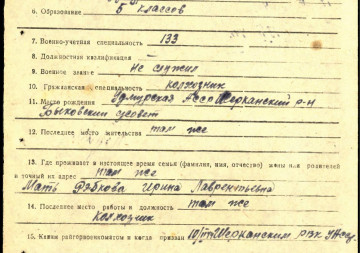 6. Образование 5 классов
7. Военно-учетная специальность 133
8. Должностная квалификация
9. Военное звание Не служил
10. Гражданская специальность колхозник
11. Место рождения Удмурская АССР Шарканский р-н
Быковский с/совет
12. Последнее место жительства там же
13. Где проживает в настоящее время семья (фамилия, имя, отчество) жены или родителей
и точный их адрес там же
Мать Рябкова Ирина Лаврентьевна
14. Последнее место работы и должность там же
Колхозник
15. Каким райвоенкоматом и когда призван Шарканским РВК УАССР